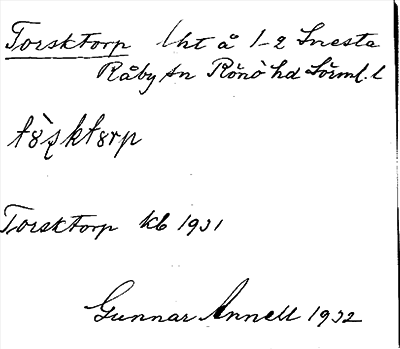 Torsktorp lht å 1-2 Snesta
Råby sn Rönö hd Sörml. l
Torsktorp kb 1931
Gunnar Annell 1932